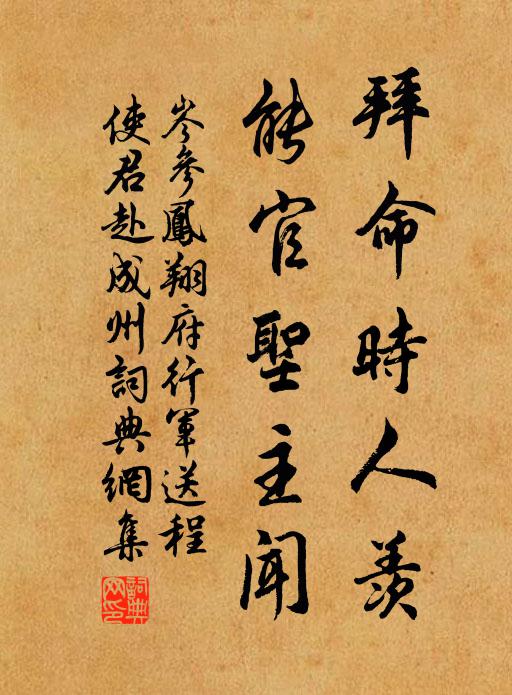 拜命時人羨
能官聖主聞
岑參鳳翔府行軍送程
使君赴成州詞典網集
詞典
网印